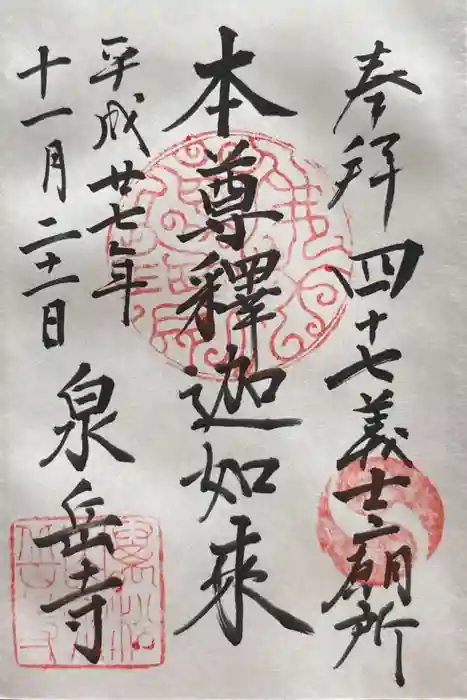 奉拜 四十七義士廟所
本尊釋迦如來
平成廿七年
十一月二十一日
泉岳寺